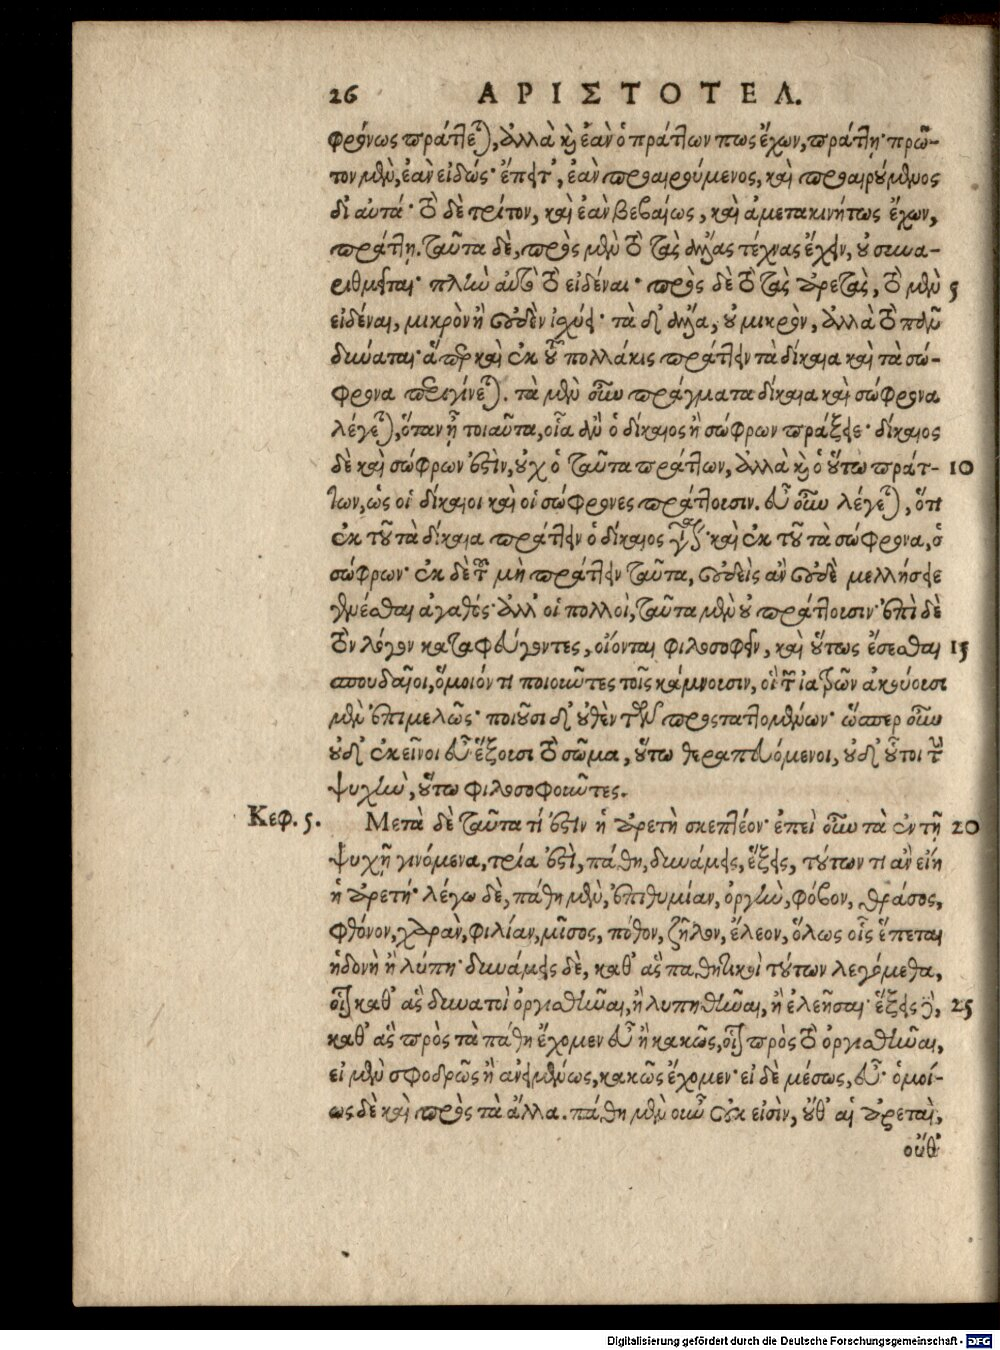 26 ΑΡΙΣΤΟΤΕΛ.
φρόνως πράττεται, ἀλλὰ καὶ ἐὰν ὁ πράττων πως ἔχων, πράττῃ· πρῶ-
τον μὲν, ἐὰν εἰδώς· ἔπειτ', ἐὰν προαιρούμενος, καὶ προαιρούμενος
δι' αὐτά· τὸ δὲ τρίτον, καὶ ἐὰν βεβαίως, καὶ ἀμετακινήτως ἔχων,
πράττῃ. ταῦτα δὲ, πρὸς μὲν τὸ τὰς ἄλλας τέχνας ἔχειν, οὐ συνα-
ριθμεῖται· πλὴν αὐτὸ τὸ εἰδέναι· πρὸς δὲ τὸ τὰς ἀρετὰς, τὸ μὲν 5
εἰδέναι, μικρὸν ἢ οὐδὲν ἰχύει· τὰ δ' ἄλλα, οὐ μικρὸν, ἀλλὰ τὸ πολὺ
δύναται· ἅπερ καὶ ἐκ τοῦ πολλάκις πράττειν τὰ δίκαια καὶ τὰ σώ-
φρονα περιγίνεται. τὰ μὲν οὖν πράγματα δίκαια καὶ σώφρονα
λέγεται, ὅταν ᾖ τοιαῦτα, οἷα ἂν ὁ δίκαιος ἢ σώφρων πράξειε· δίκαιος
δὲ καὶ σώφρων ἐστὶν, οὐχ ὁ ταῦτα πράττων, ἀλλὰ καὶ ὁ οὕτω πράτ- 10
των, ὡς οἱ δίκαιοι καὶ οἱ σώφρονες πράττουσιν. εὖ οὖν λέγεται, ὅτι
ἐκ τοῦ τὰ δίκαια πράττειν ὁ δίκαιος γίνεται· καὶ ἐκ τοῦ τὰ σώφρονα, ὁ
σώφρων· ἐκ δὲ τοῦ μὴ πράττειν ταῦτα, οὐδεὶς ἂν οὐδὲ μελλήσειε
γενέσθαι ἀγαθός· ἀλλ' οἱ πολλοὶ, ταῦτα μὲν οὐ πράττουσιν· ἐπὶ δὲ
τὸν λόγον καταφεύγοντες, οἴονται φιλοσοφεῖν, καὶ οὕτως ἔσεσθαι 15
σπουδαῖοι, ὅμοιόν τι ποιοῦντες τοῖς κάμνουσιν, οἳ τῶν ἰατρῶν ἀκούουσι
μὲν ἐπιμελῶς· ποιοῦσι δ' οὐθὲν τῶν προςταττομένων· ὥσπερ οὖν
οὐδ' ἐκεῖνοι εὖ ἕξουσι τὸ σῶμα, οὕτω θεραπευόμενοι, οὐδ' οὗτοι τὴν
ψυχὴν, οὕτω φιλοσοφοῦντες.
Κεφ. 5. Μετὰ δὲ ταῦτα τί ἐστὶν ἡ ἀρετὴ σκεπτέον· ἐπεὶ οὖν τὰ ἐν τῇ 20
ψυχῇ γινόμενα, τρία ἐστὶ, πάθη, δυνάμεις, ἕξεις, τούτων τι ἂν εἴη
ἡ ἀρετή· λέγω δὲ, πάθη μὲν, ἐπιθυμίαν, ὀργὴν, φόβον, θράσος,
φθόνον, χαρὰν, φιλίαν, μῖσος, πόθον, ζῆλον, ἔλεον, ὅλως οἷς ἕπεται
ἡδονὴ ἢ λύπη· δυνάμεις δὲ, καθ' ἃς παθητικοὶ τούτων λεγόμεθα,
οἷον καθ' ἃς δυνατοὶ ὀργισθῆναι, ἢ λυπηθῆναι, ἢ ἐλεῆσαι· ἕξεις δὲ, 25
καθ' ἃς πρὸς τὰ πάθη ἔχομεν εὖ ἢ κακῶς, οἷον πρὸς τὸ ὀργισθῆναι,
εἰ μὲν σφοδρῶς ἢ ἀνειμένως, κακῶς ἔχομεν· εἰ δὲ μέσως, εὖ· ὁμοί-
ως δὲ καὶ πρὸς τὰ ἄλλα. πάθη μὲν οὖν οὐκ εἰσὶν, οὔθ' αἱ ἀρεταὶ,
οὔθ'
Digitalisierung gefördert durch die Deutsche Forschungsgemeinschaft - DFG